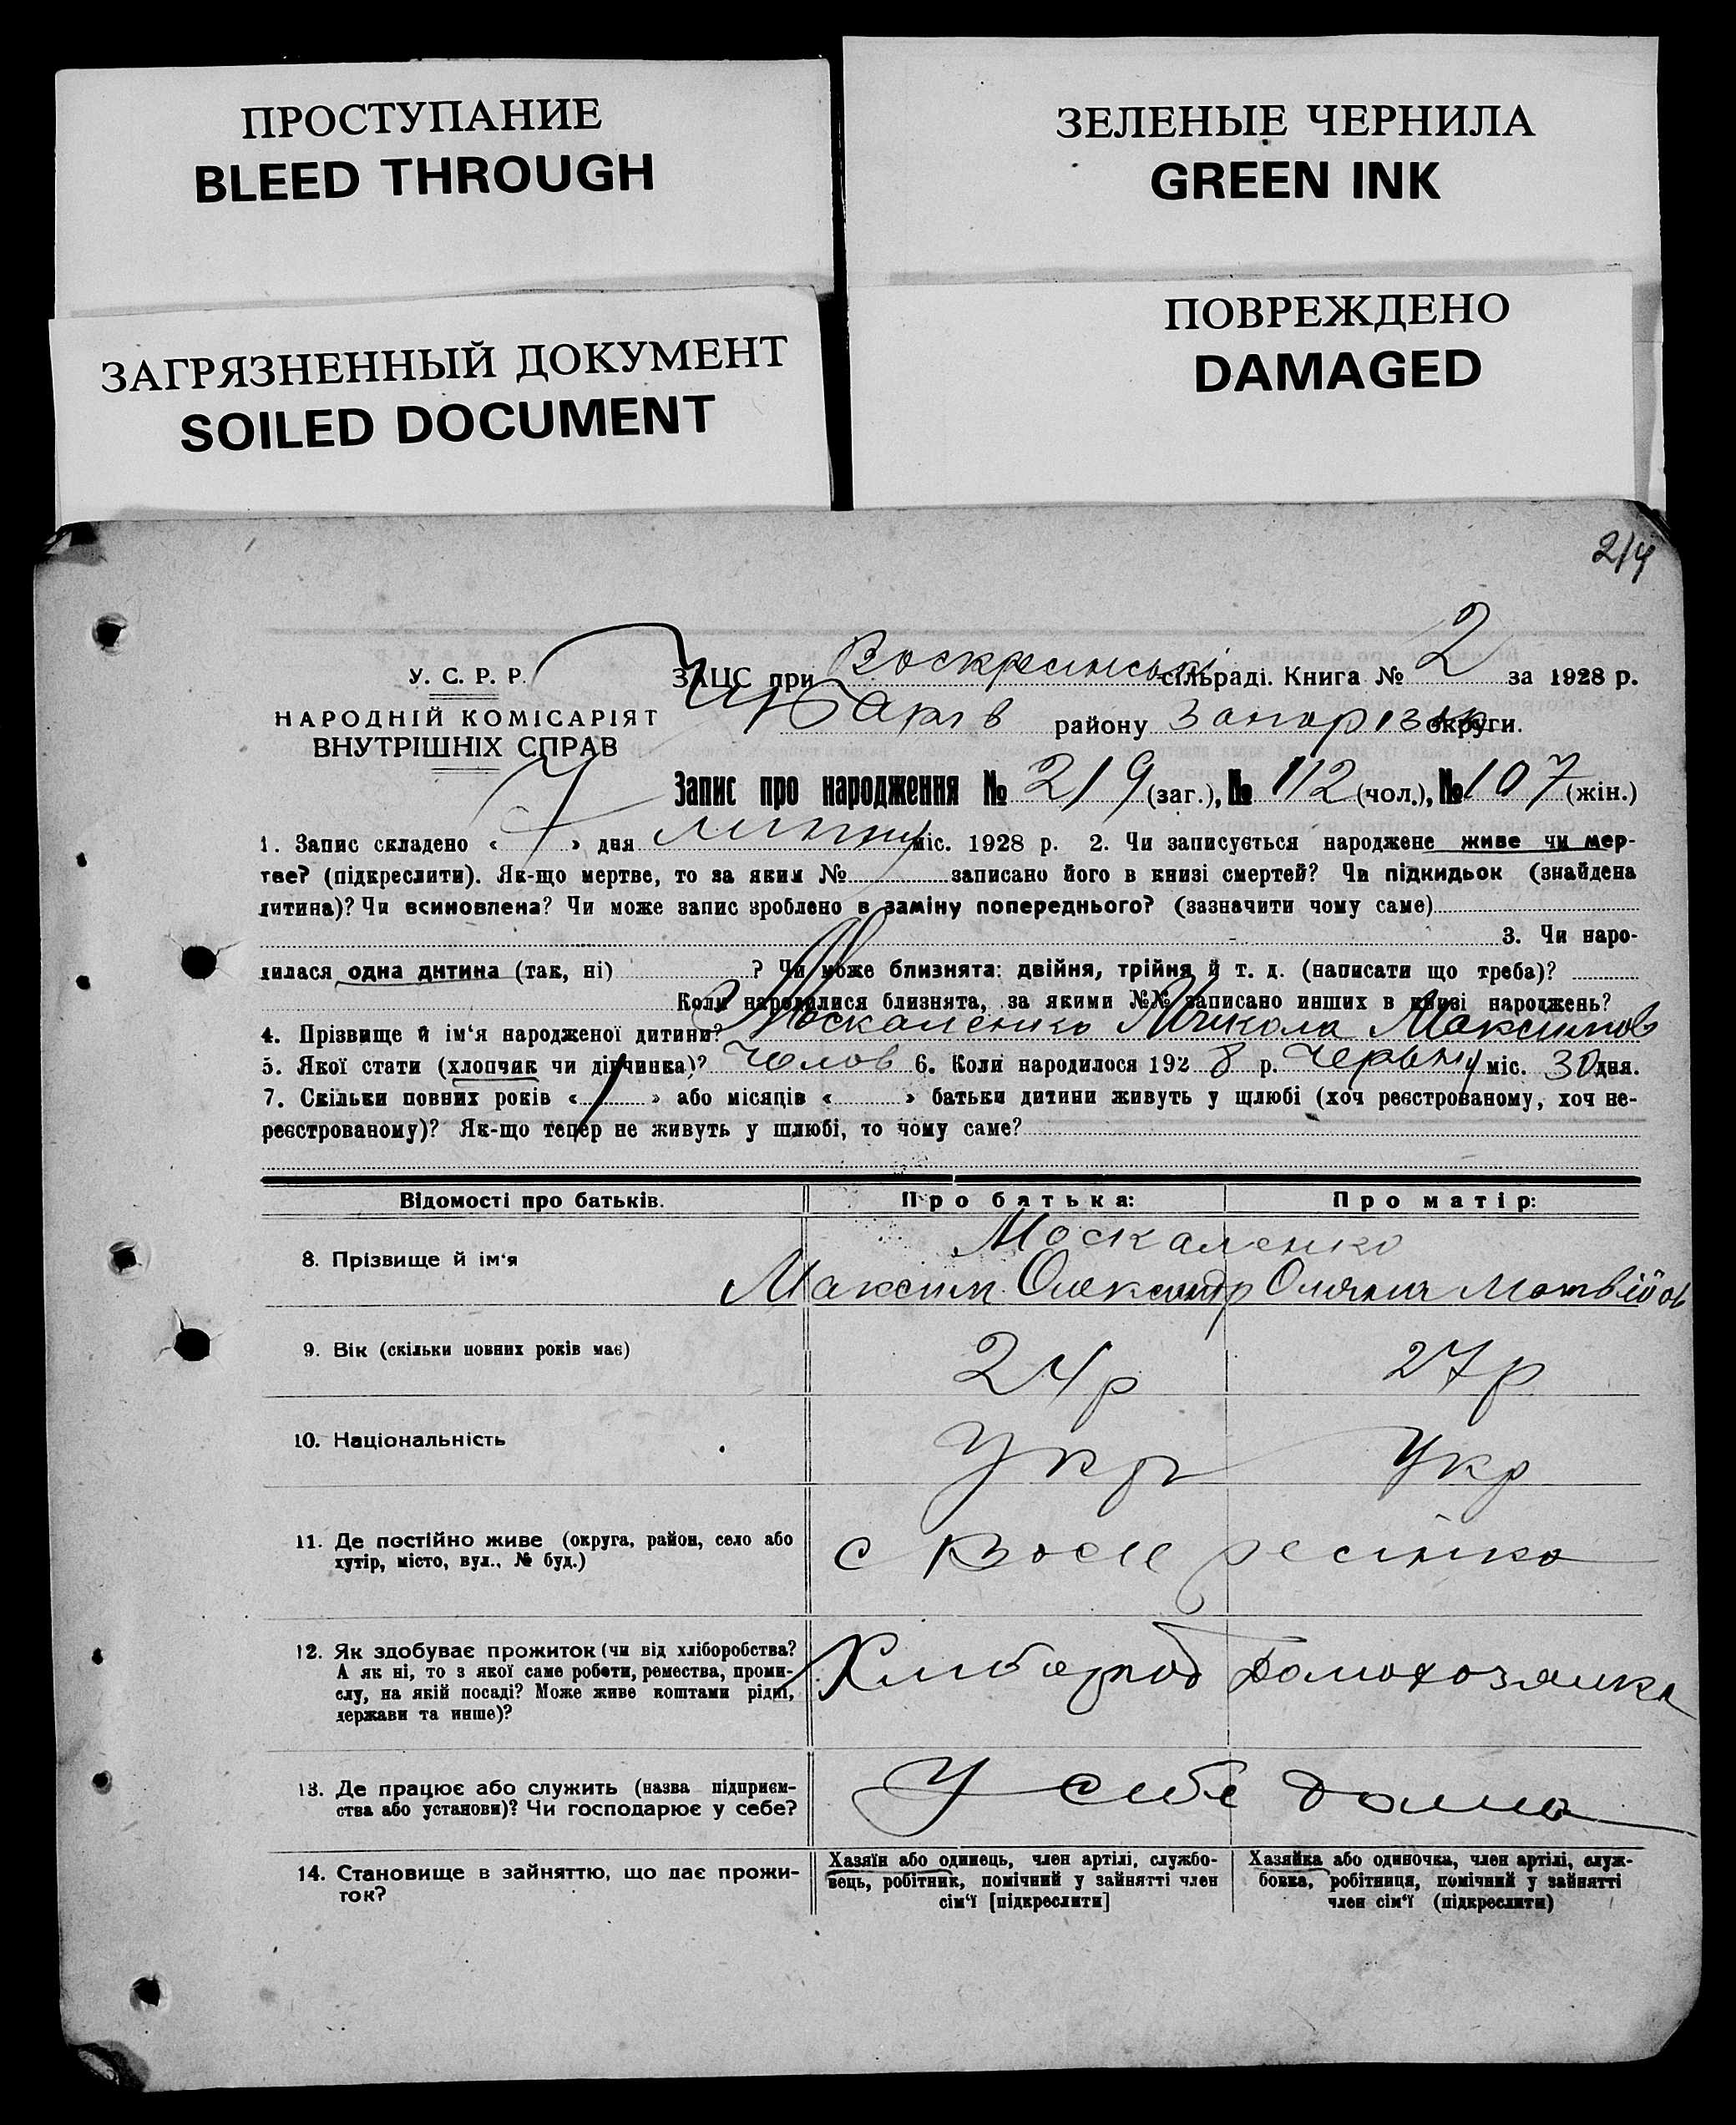 ПРОСТУПАНИЕ
BLEED THROUGH
ЗЕЛЕНЫЕ ЧЕРНИЛА
GREEN INK
ЗАГРЯЗНЕННЫЙ ДОКУМЕНТ
SOILED DOCUMENT
ПОВРЕЖДЕНО
DAMAGED
У. С. Р. Р.
НАРОДНІЙ КОМІСАРІЯТ
ВНУТРІШНІХ СПРАВ
ЗАЦС при Воскресинські сільраді. Книга № 2 за 1928 р.
району Запоріз округи.
Запис про народження № 219 (заг.), № 112 (чол.), № 107 (жін.)
1. Запис складено « 7 » дня липня міс. 1928 р. 2. Чи записується народжене живе чи мер-
тве? (підкреслити). Як-що мертве, то за яким № записано його в книзі смертей? Чи підкидьок (знайдена
дитина)? Чи всиновлена? Чи може запис зроблено в заміну попереднього? (зазначити чому саме)
3. Чи наро-
дилася одна дитина (так, ні) ? Чи може близнята: двійня, трійня й т. д. (написати що треба)?
Коли народилися близнята, за якими №№ записано инших в книзі народжень?
4. Прізвище й ім'я народженої дитини? Москаленко Микола Максимов
5. Якої стати (хлопчик чи дівчинка)? Челов 6. Коли народилося 192 8 р. Червня міс. 30 дня.
7. Скільки повних років « » або місяців « » батьки дитини живуть у шлюбі (хоч реєстрованому, хоч не-
реєстрованому)? Як-що тепер не живуть у шлюбі, то чому саме?
Відомості про батьків. Про батька: Про матір:
8. Прізвище й ім'я Москаленко
Максим Олександр Матвійов
9. Вік (скільки повних років має) 24р 27р
10. Національність Укр Укр
11. Де постійно живе (округа, район, село або
хутір, місто, вул., № буд.)
с Воскресінка
12. Як здобуває прожиток (чи від хліборобства?
А як ні, то з якої саме роботи, ремества, проми-
слу, на якій посаді? Може живе коштами рідні,
держави та инше)?
Хлибороб Домохозяика
13. Де працює або служить (назва підприєм-
ства або установи)? Чи господарює у себе?
У себе дома
14. Становище в зайняттю, що дає прожи-
ток?
Хазяїн або одинець, член артілі, службо-
вець, робітник, помічний у зайнятті член
сім'ї [підкреслити]
Хазяйка або одиночка, член артілі, служ-
бовка, робітниця, помічний у зайнятті
член сім'ї (підкреслити)